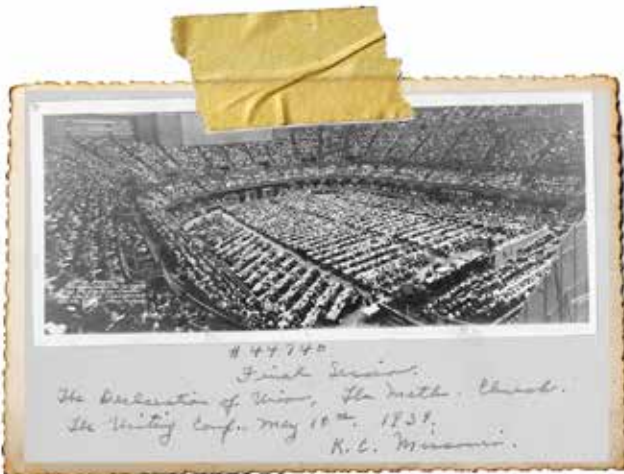 # 44740
Final Session.
The Declaration of Union, The Meth. Church.
The Uniting Conf. May 10th, 1939.
K.C. Missouri.